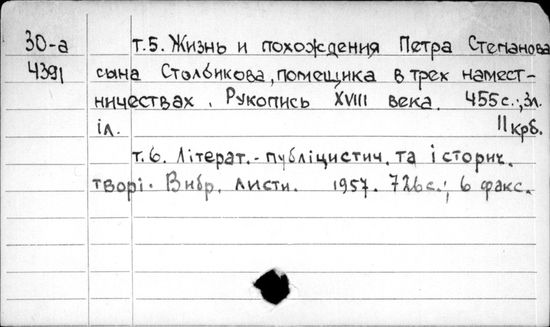 30-а т.5. Жизнь и похождения Петра Степанова
4391 сына Столбикова, помещика в трех намест-
ничествах. Рукопись XVIII века. 455с.; 3л.
іл. 11 крб.
т.6. Літерат.-публіцистич. та історич.
творі. Вибр. листи. 1957. 726с.; 6 факс.